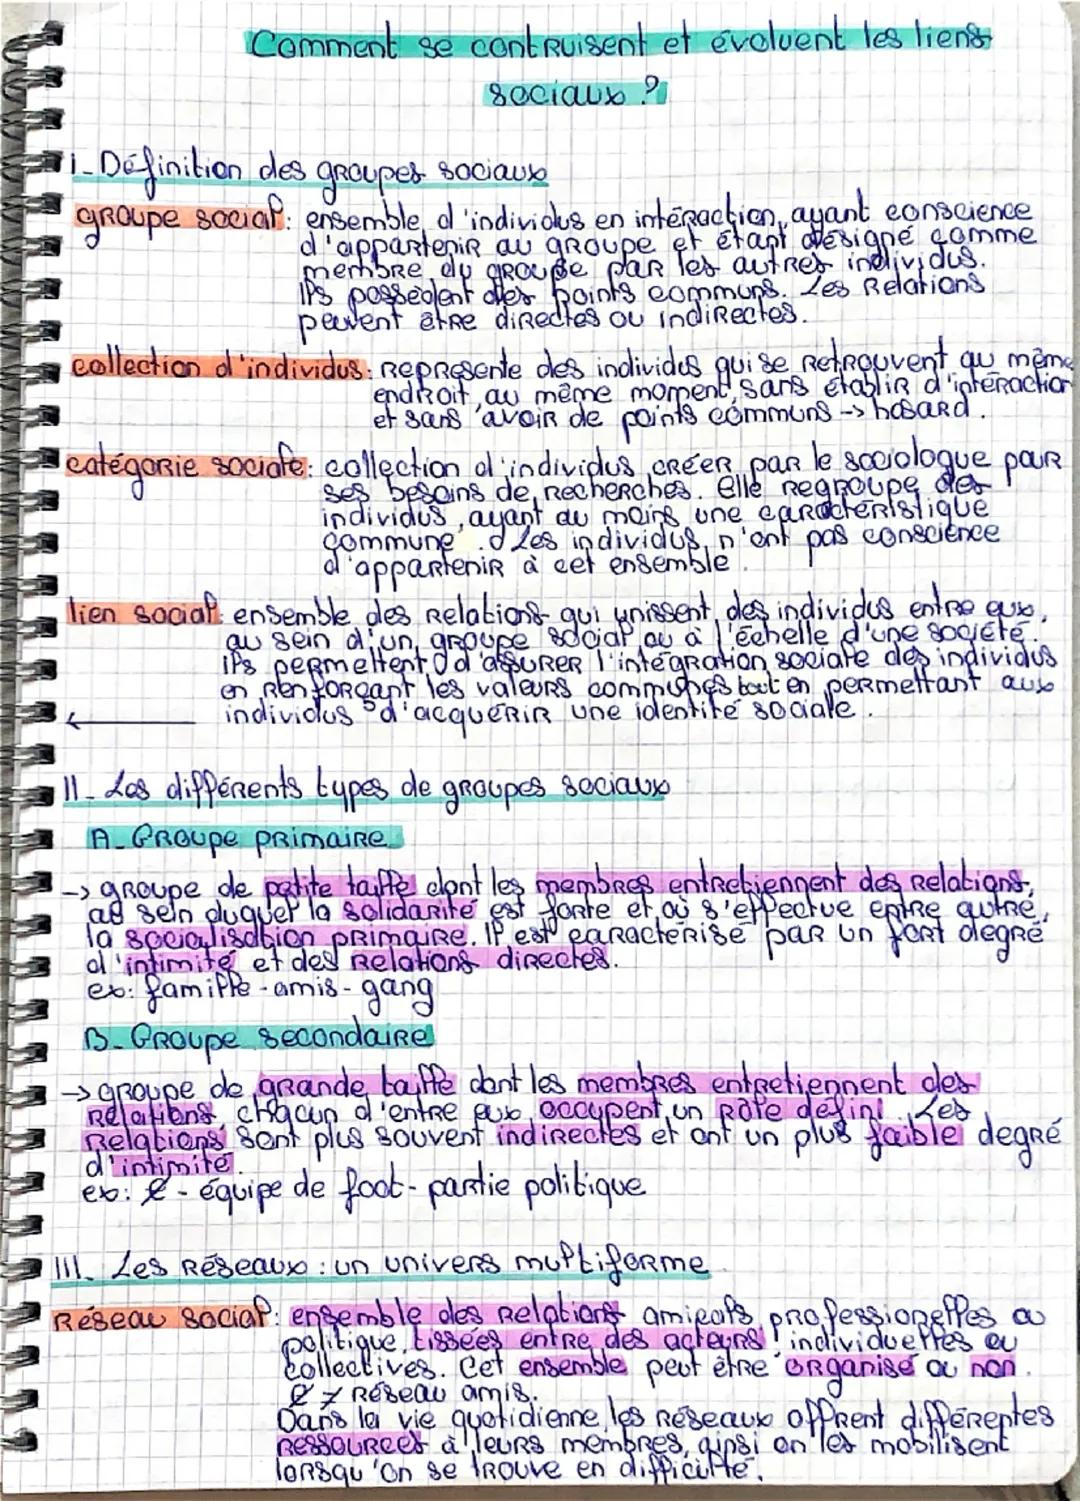 Comment se contruisent et évoluent les liens
sociaux ?
I_ Définition des groupes sociaux
groupe social: ensemble d'individus en intéraction, ayant conscience
d'appartenir au groupe et étant désigné comme
membre du groupe par les autres individus.
ils possèdent des points communs. Les Relations
peuvent être directes ou indirectes.
collection d'individus: représente des individus qui se retrouvent au même
endroit, au même moment, sans établir d'intéraction
et sans avoir de points communs -> hasard.
catégorie sociale: collection d'individus créer par le sociologue pour
ses besoins de recherches. Elle regroupe des
individus, ayant au moins une caractéristique
commune. Les individus n'ont pas conscience
d'appartenir à cet ensemble.
lien social: ensemble des relations qui unissent des individus entre eux,
au sein d'un groupe social ou à l'échelle d'une société.
ils permettent d'assurer l'intégration sociale des individus
en renforçant les valeurs communes tout en permettant aux
individus d'acquérir une identité sociale.
II_ Les différents types de groupes sociaux
A_ Groupe primaire
-> groupe de petite taille dont les membres entretiennent des relations,
au sein duquel la solidarité est forte et où s'effectue entre autre,
la socialisation primaire. Il est caractérisé par un fort degré
d'intimité et des relations directes.
ex: famille - amis - gang
B_ Groupe secondaire
-> groupe de grande taille dont les membres entretiennent des
relations chacun d'entre eux occupent un rôle défini. Les
relations sont plus souvent indirectes et ont un plus faible degré
d'intimité.
ex: - équipe de foot - partie politique
III_ Les réseaux : un univers multiforme
Réseau social: ensemble des relations amicals, professionelles ou
politique, tissées entre des acteurs individuelles ou
collectives. Cet ensemble peut être organisé ou non.
≠ réseau amis.
Dans la vie quotidienne, les réseaux offrent différentes
ressources à leurs membres, ainsi on les mobilisent
lorsqu'on se trouve en difficulté.